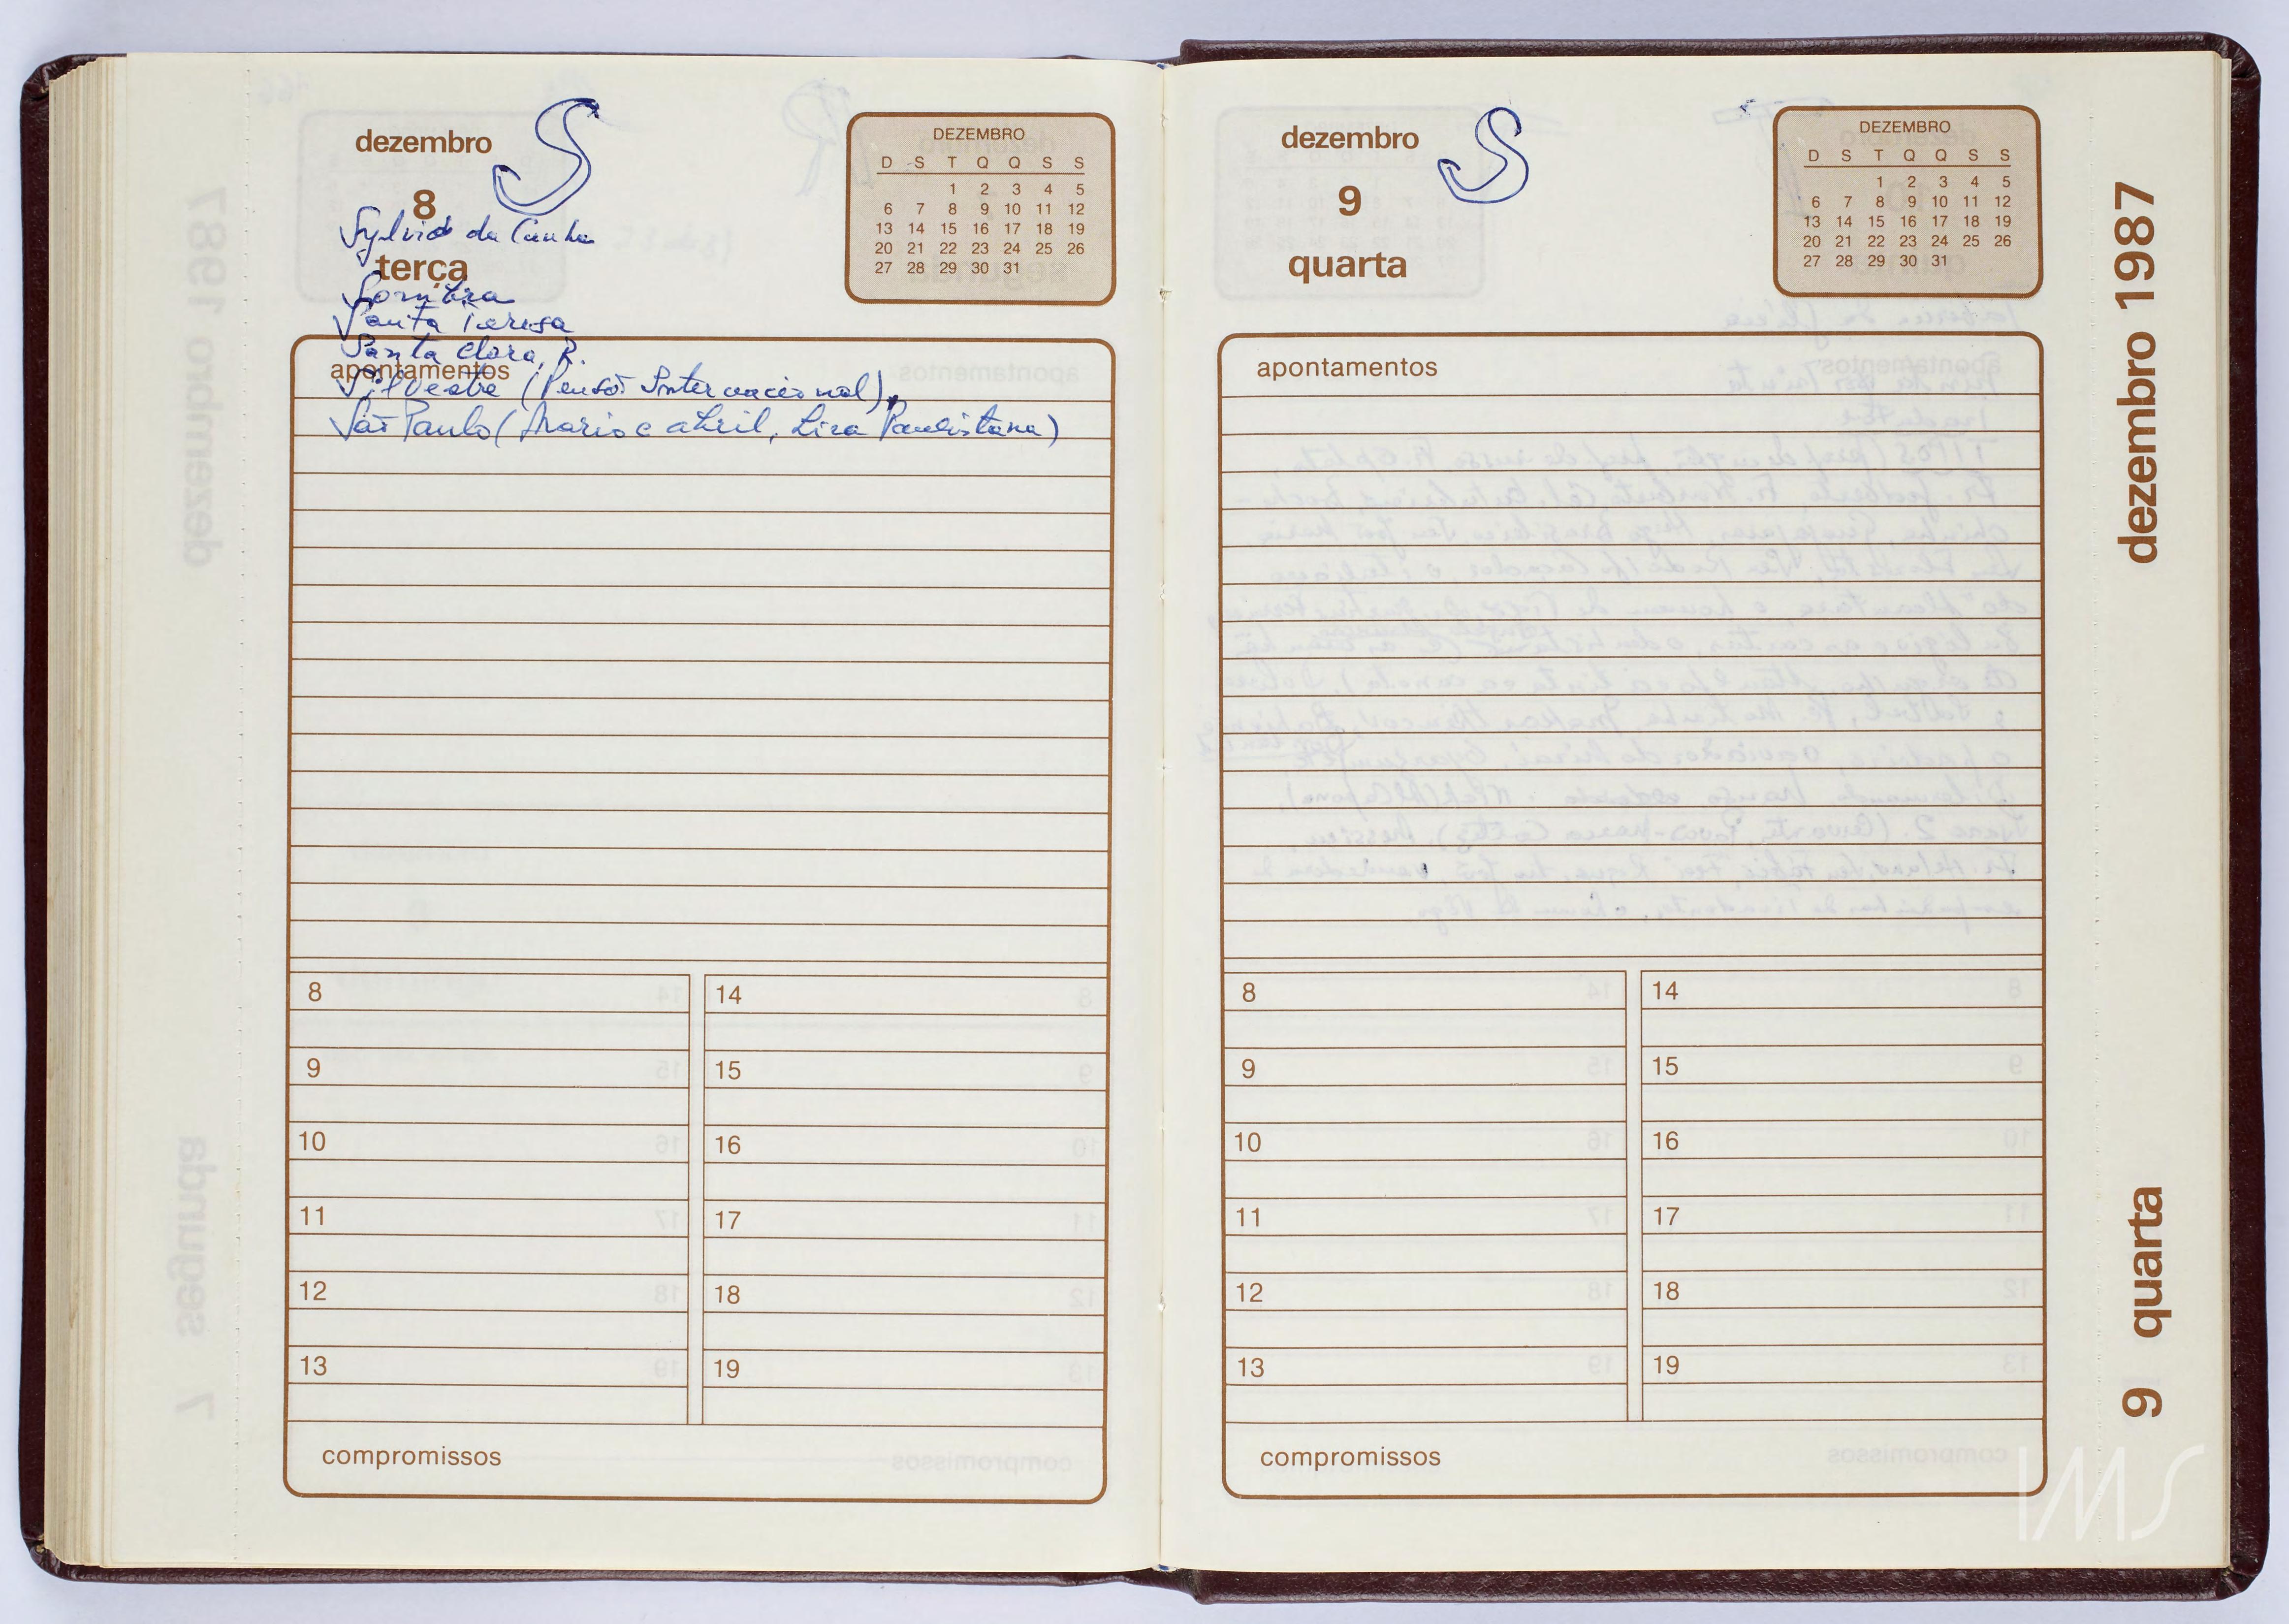 dezembro S
8
Sylvio da Cunha
terça
Sombra
Santa Teresa
Santa Clara, R.
apontamentos
Silvestre (Pensão Internacional),
São Paulo (Mario e abril, Lira Paulistana)
DEZEMBRO
D S T Q Q S S
1 2 3 4 5
6 7 8 9 10 11 12
13 14 15 16 17 18 19
20 21 22 23 24 25 26
27 28 29 30 31
8 14
9 15
10 16
11 17
12 18
13 19
compromissos
dezembro S
9
quarta
DEZEMBRO
D S T Q Q S S
1 2 3 4 5
6 7 8 9 10 11 12
13 14 15 16 17 18 19
20 21 22 23 24 25 26
27 28 29 30 31
apontamentos
8 14
9 15
10 16
11 17
12 18
13 19
compromissos
dezembro 1987
9 quarta
IMS